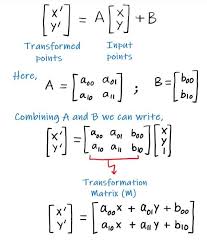 [x' y'] = A [x y] + B
Transformed points Input points
Here, A = [a₀₀ a₀₁ a₁₀ a₁₁] ; B = [b₀₀ b₁₀]
Combining A and B we can write,
[x' y'] = [a₀₀ a₀₁ b₀₀ a₁₀ a₁₁ b₁₀] [x y 1]
Transformation Matrix (M)
[x' y'] = [a₀₀x + a₀₁y + b₀₀ a₁₀x + a₁₁y + b₁₀]